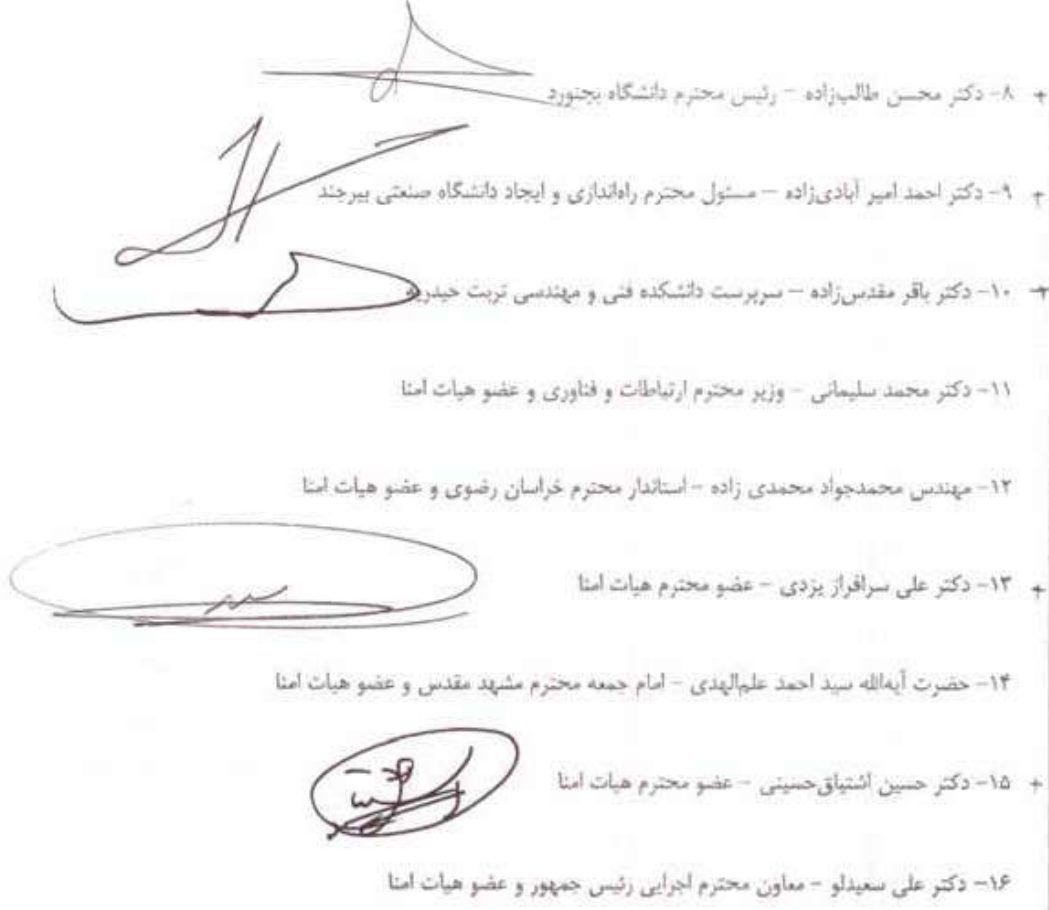 + ۸- دکتر محسن طالب‌زاده - رئیس محترم دانشگاه بجنورد
+ ۹- دکتر احمد امیر آبادی‌زاده – مسئول محترم راه‌اندازی و ایجاد دانشگاه صنعتی بیرجند
+ ۱۰- دکتر باقر مقدس‌زاده – سرپرست دانشکده فنی و مهندسی تربت حیدریه
۱۱- دکتر محمد سلیمانی - وزیر محترم ارتباطات و فناوری و عضو هیات امنا
۱۲- مهندس محمدجواد محمدی زاده - استاندار محترم خراسان رضوی و عضو هیات امنا
+ ۱۳- دکتر علی سرافراز یزدی - عضو محترم هیات امنا
۱۴- حضرت آیه‌الله سید احمد علم‌الهدی - امام جمعه محترم مشهد مقدس و عضو هیات امنا
+ ۱۵- دکتر حسین اشتیاق‌حسینی - عضو محترم هیات امنا
۱۶- دکتر علی سعیدلو - معاون محترم اجرایی رئیس جمهور و عضو هیات امنا